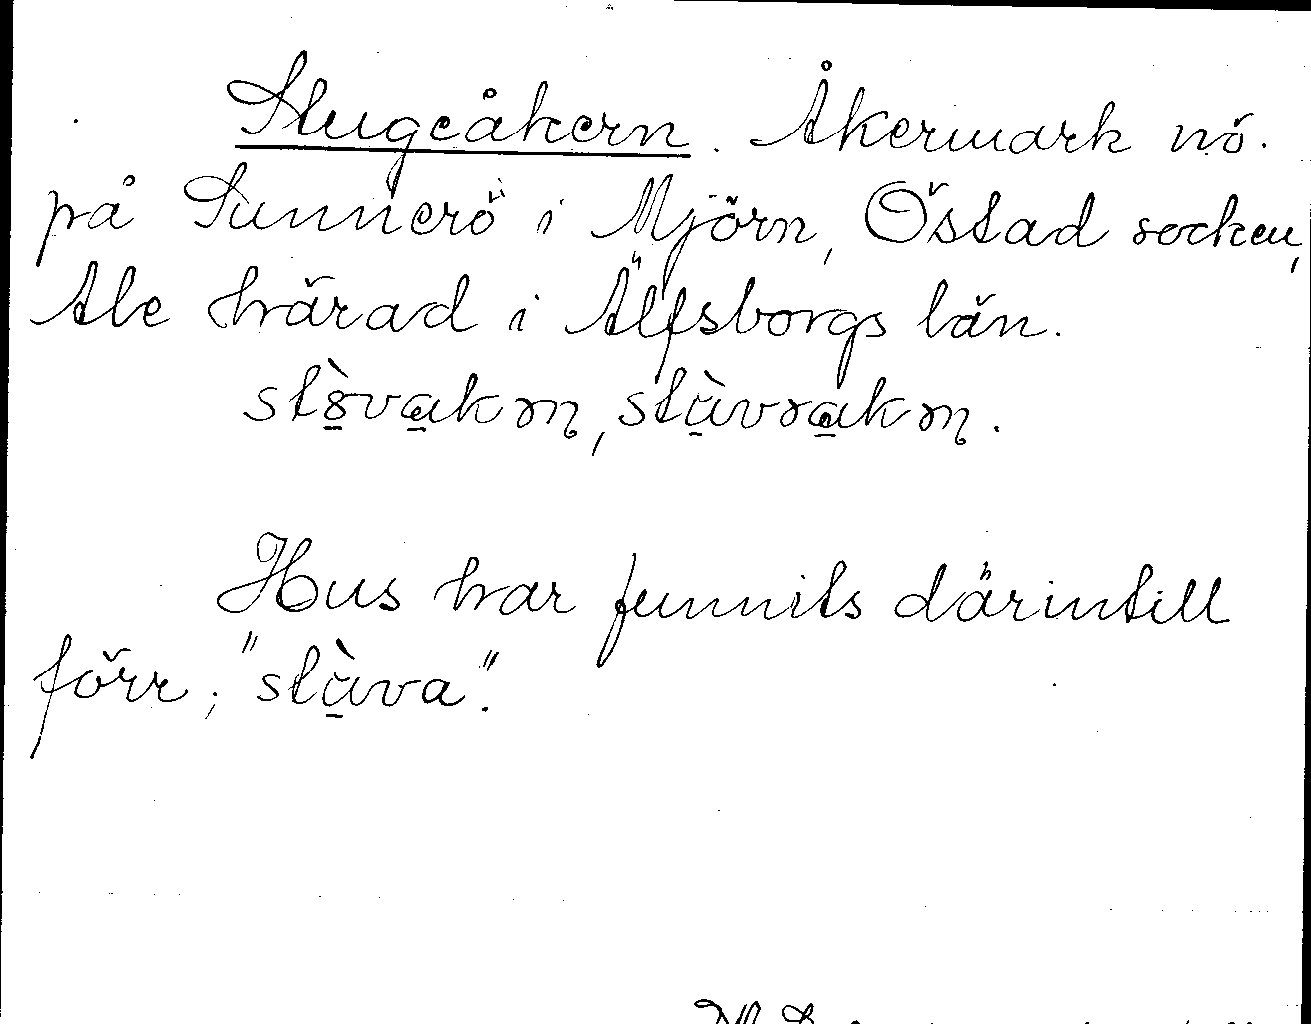 Stugeåkern. Åkermark nö.
på Sunnerö i Mjörn, Östad socken,
Ale härad i Älfsborgs län.
stòvakɷn, stùvrakɷn.
Hus har funnits därintill
förr; "stùva".